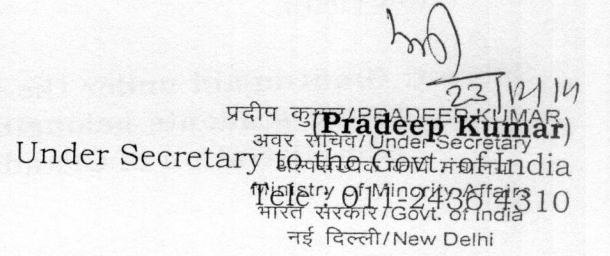 23/12/14
प्रदीप कुमार/PRADEEP KUMAR
(Pradeep Kumar)
अवर सचिव/Under Secretary
Under Secretary to the Govt. of India
अल्पसंख्यक कार्य मंत्रालय
Ministry of Minority Affairs
Tele : 011-2436 4310
भारत सरकार/Govt. of India
नई दिल्ली/New Delhi